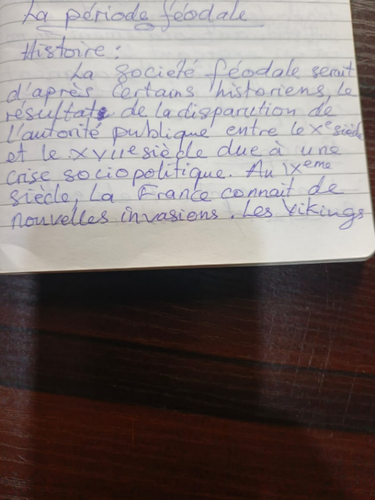 La période féodale
Histoire :
La société féodale serait
d'après certains historiens, le
résultats de la disparution de
l'autorité publique entre le Xe siècle
et le XVIIe siècle due à une
crise sociopolitique. Au IXeme
siècle, La France connait de
nouvelles invasions. Les Vikings